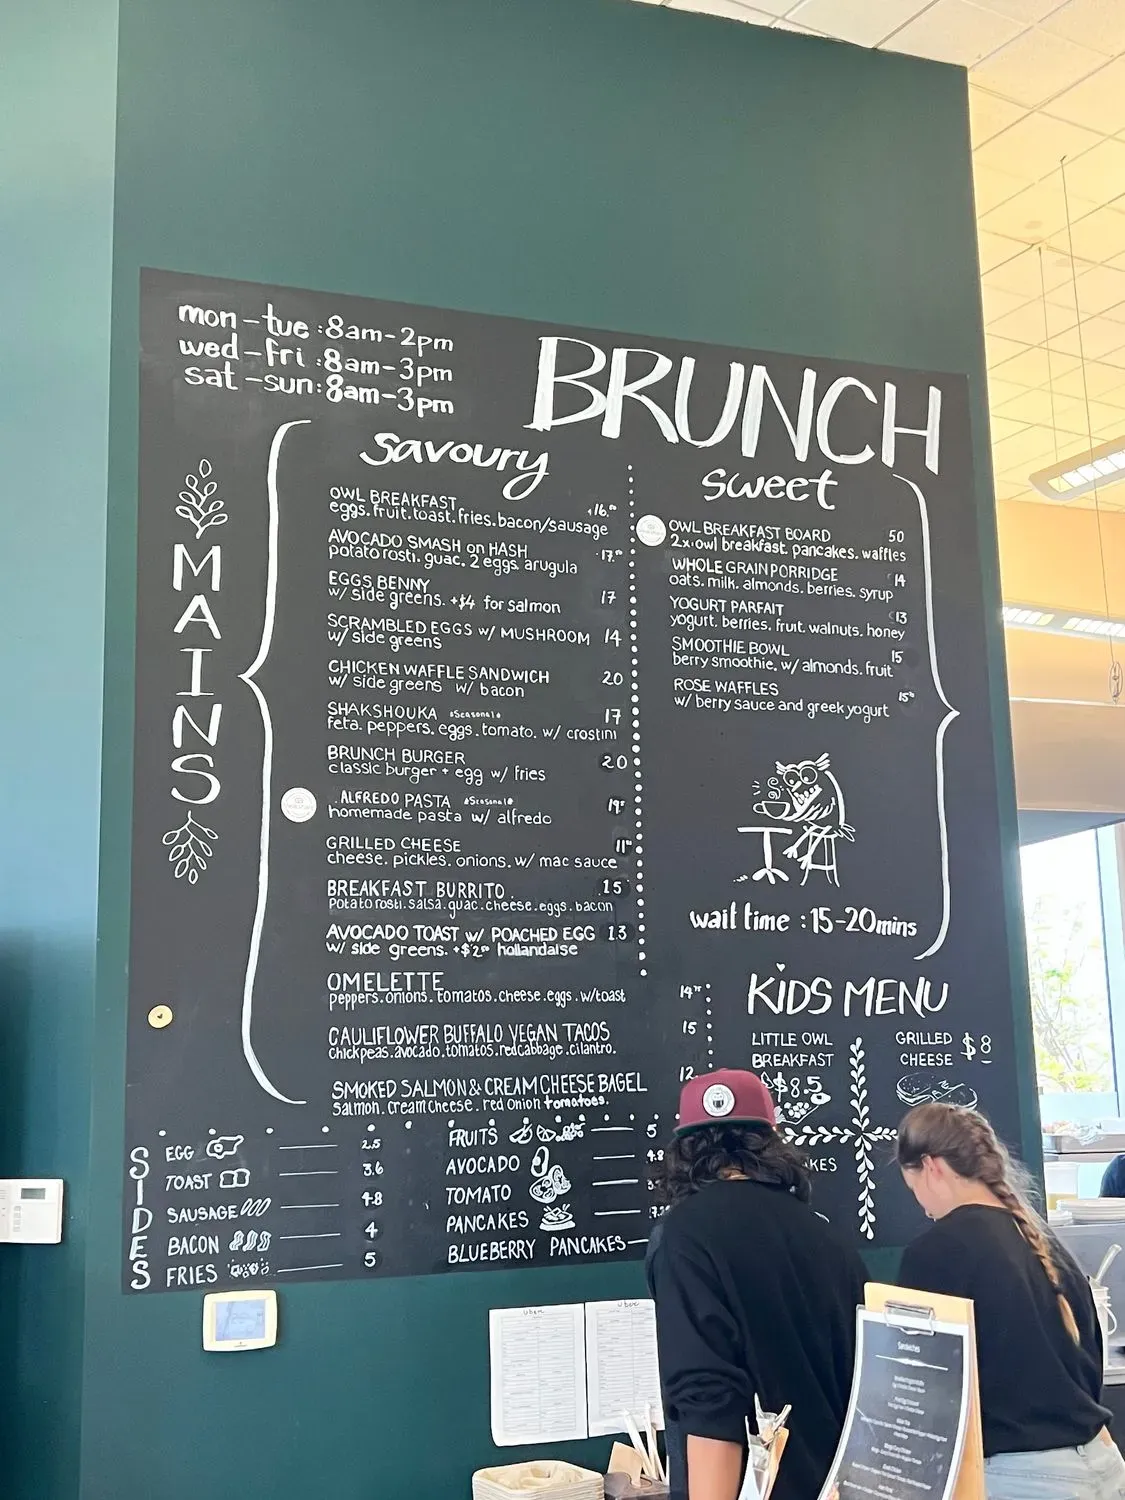 mon-tue: 8am-2pm
wed-fri: 8am-3pm
sat-sun: 8am-3pm
BRUNCH
MAINS
savoury
OWL BREAKFAST 16.00
eggs. fruit. toast. fries. bacon/sausage
AVOCADO SMASH on HASH 17.00
potato rosti. guac. 2 eggs. arugula
EGGS BENNY 17
w/ side greens. +$4 for salmon
SCRAMBLED EGGS w/ MUSHROOM 14
w/ side greens
CHICKEN WAFFLE SANDWICH 20
w/ side greens w/ bacon
SHAKSHOUKA *Seasonal* 17
feta. peppers. eggs. tomato. w/ crostini
BRUNCH BURGER 20
classic burger + egg w/ fries
ALFREDO PASTA *Seasonal*
homemade pasta w/ alfredo
GRILLED CHEESE
cheese. pickles. onions. w/ mac sauce
BREAKFAST BURRITO 15
Potato rosti. salsa. guac. cheese. eggs. bacon
AVOCADO TOAST w/ POACHED EGG 13
w/ side greens. +$2.00 hollandaise
OMELETTE
peppers. onions. tomatos. cheese. eggs. w/toast
CAULIFLOWER BUFFALO VEGAN TACOS 15
chickpeas. avocado. tomatos. red cabbage. cilantro.
SMOKED SALMON & CREAM CHEESE BAGEL 12
Salmon. cream cheese. red onion tomatoes.
sweet
OWL BREAKFAST BOARD 50
2x owl breakfast. pancakes. waffles
WHOLE GRAIN PORRIDGE 14
oats. milk. almonds. berries. syrup
YOGURT PARFAIT 13
yogurt. berries. fruit. walnuts. honey
SMOOTHIE BOWL 15
berry smoothie. w/ almonds. fruit
ROSE WAFFLES
w/ berry sauce and greek yogurt
wait time : 15-20mins
KIDS MENU
LITTLE OWL
BREAKFAST
$8.5
GRILLED
CHEESE
$8
SIDES
EGG 2.5
TOAST 3.6
SAUSAGE 4.8
BACON 4
FRIES 5
FRUITS 5
AVOCADO 4.8
TOMATO
PANCAKES
BLUEBERRY PANCAKES
Uber
Uber
Sandwiches